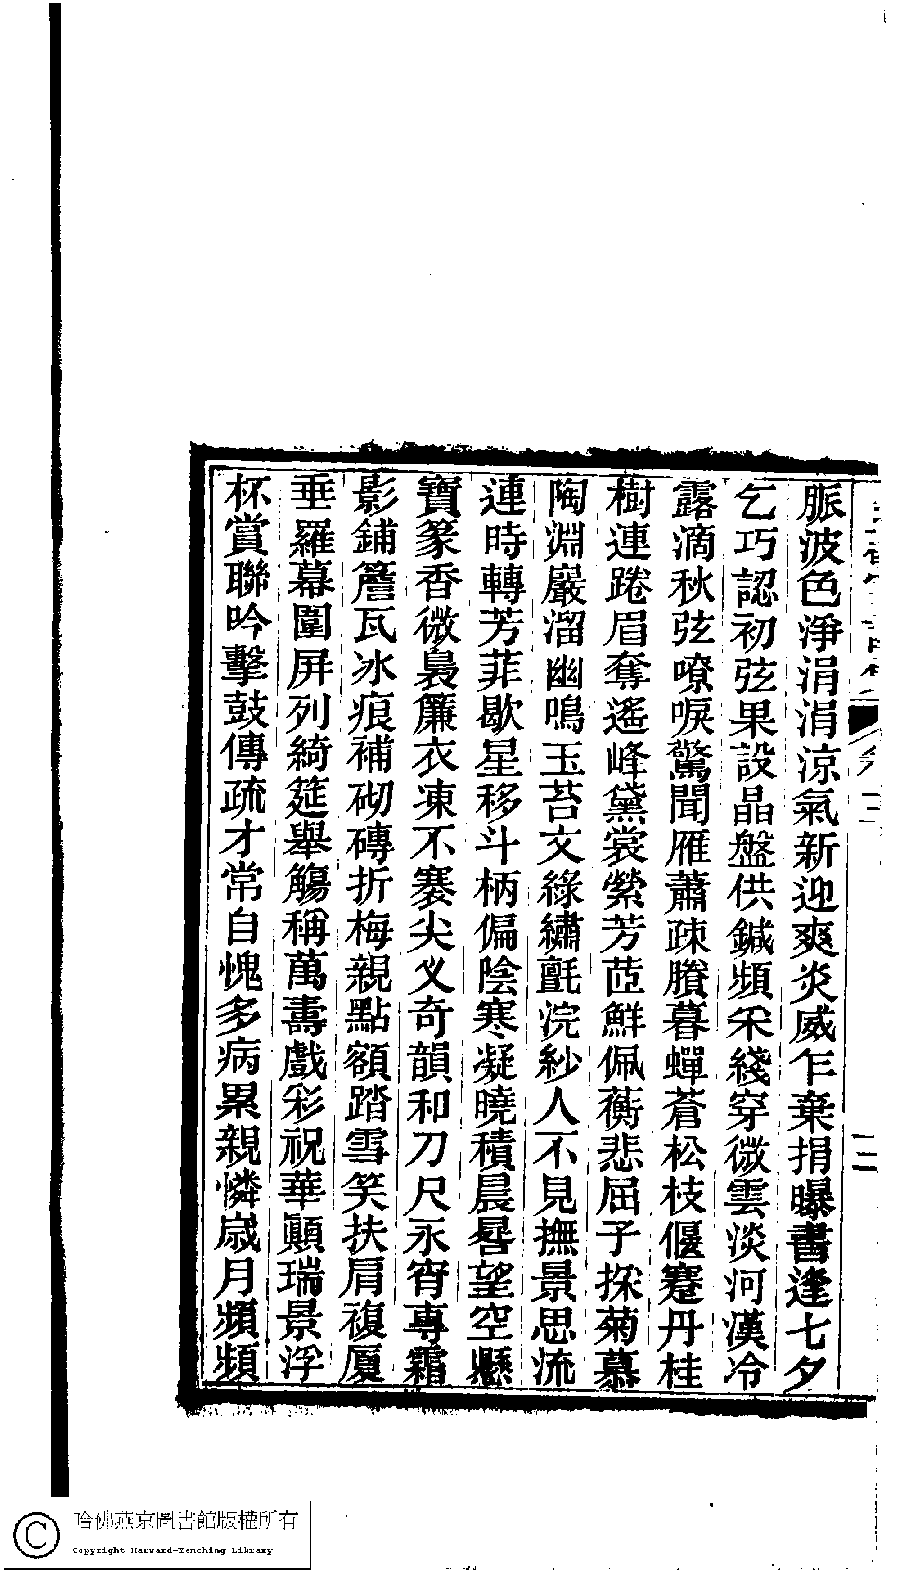 卷三
三
脈波色淨涓涓凉氣新迎爽炎威乍棄捐曝書逢七夕
乞巧認初弦果設晶盤供鍼頻采綫穿微雲淡河漢冷
露滴秋弦嘹唳驚聞雁蕭疎賸暮蟬蒼松枝偃蹇丹桂
樹連踡眉奪遙峰黛裳縈芳茝鮮佩蘅悲屈子採菊慕
陶淵巖溜幽鳴玉苔文綠繡氈浣紗人不見撫景思流
連時轉芳菲歇星移斗柄偏陰寒凝曉積晨晷望空懸
寶篆香微裊簾衣凍不褰尖叉奇韻和刀尺永宵專霜
影鋪簷瓦冰痕補砌磚折梅親點額踏雪笑扶肩複厦
垂羅幕圍屏列綺筵舉觴稱萬壽戲彩祝華顚瑞景浮
杯賞聯吟擊鼓傳疏才常自愧多病累親憐歲月頻頻
哈佛燕京圖書館版權所有
Copyright Harvard-Yenching Library